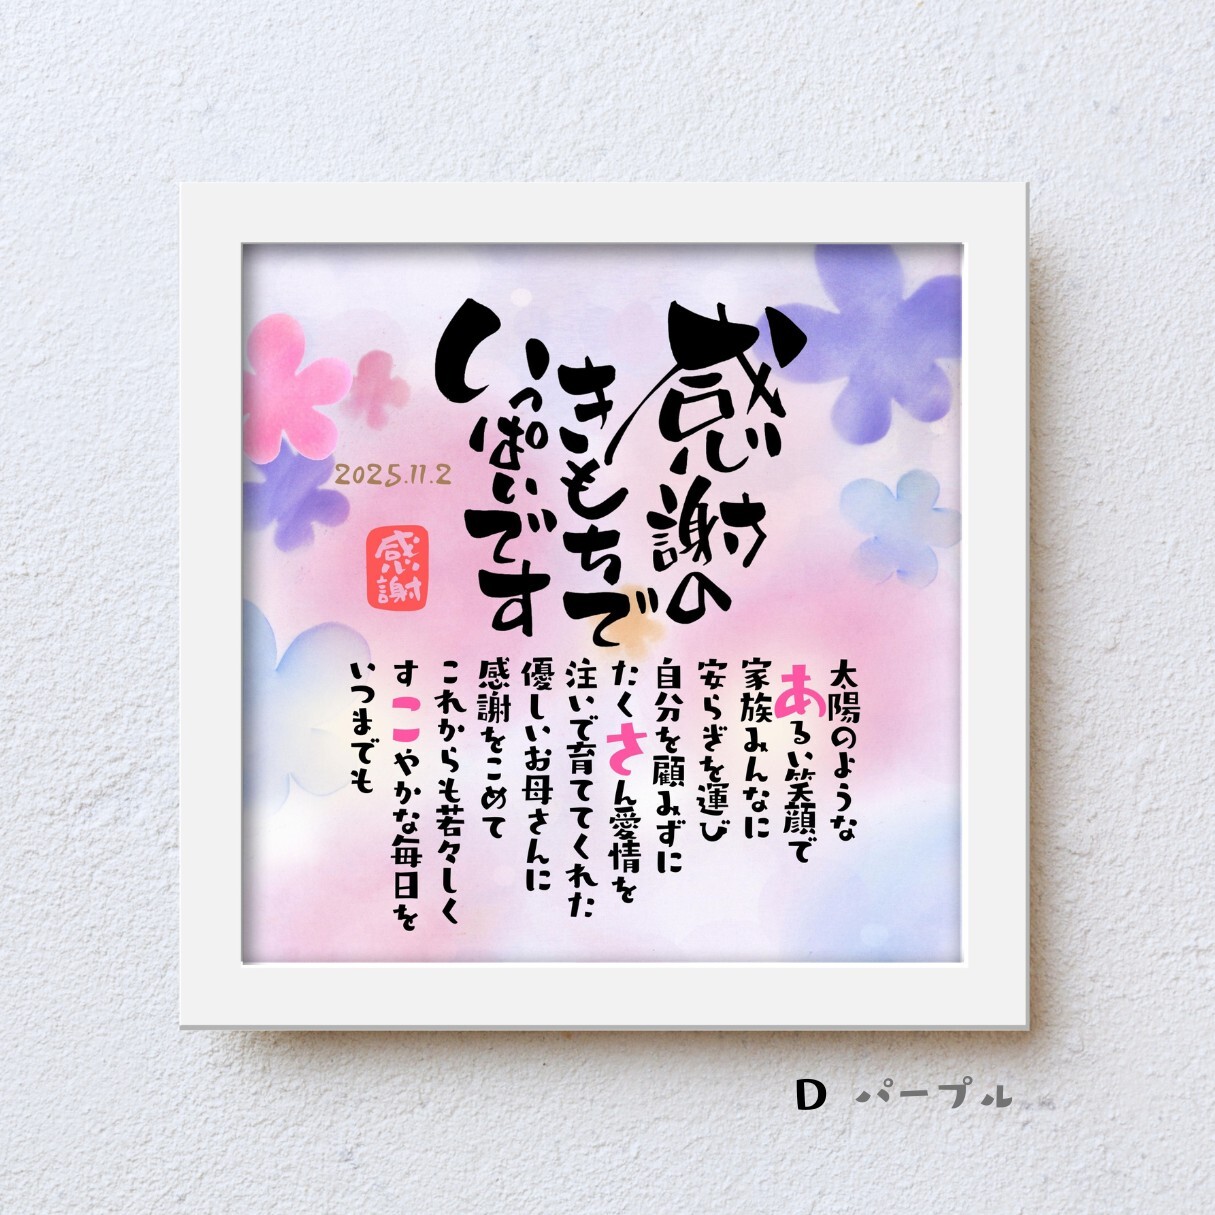 感謝の
きもちで
いっぱいです
2025.11.2
感謝
太陽のような
あるい笑顔で
家族みんなに
安らぎを運び
自分を顧みずに
たくさん愛情を
注いで育ててくれた
優しいお母さんに
感謝をこめて
これからも若々しく
すこやかな毎日を
いつまでも
D パープル